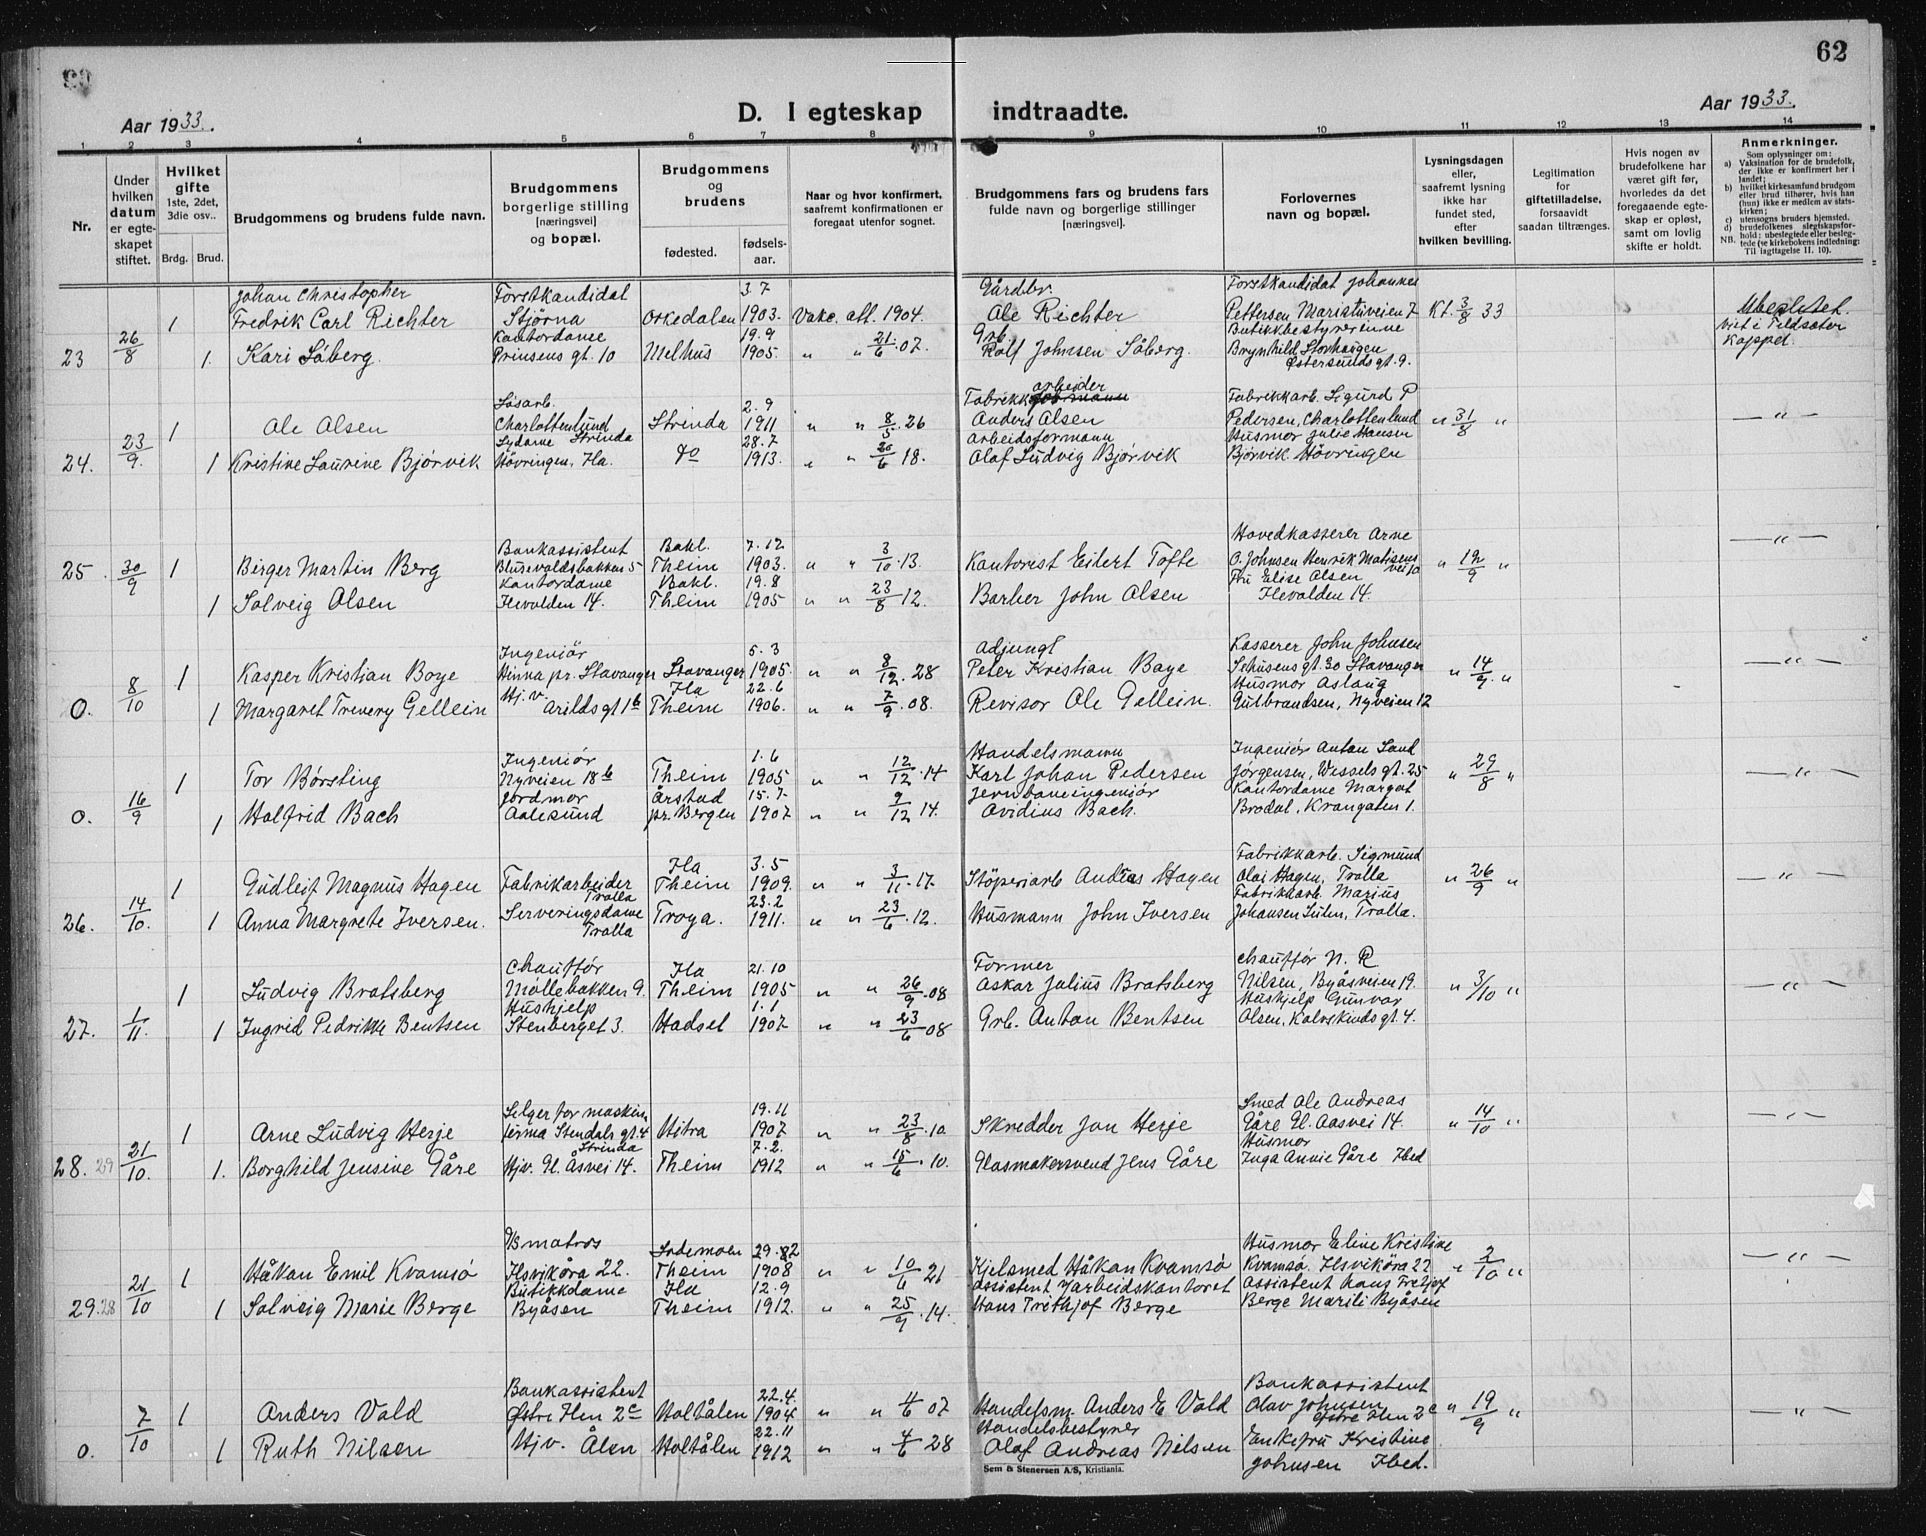 62
Aar 1933.
D. I egteskap indtraadte.
Aar 1933.
1 2 3 4 5 6 7 8 9 10 11 12 13 14
Nr.
Under hvilken datum er egteskapet stiftet.
Hvilket gifte 1ste, 2det, 3die osv..
Brdg. Brud.
Brudgommens og brudens fulde navn.
Brudgommens borgerlige stilling [næringsvei] og bopæl.
Brudgommens og brudens
fødested. fødsels-aar.
Naar og hvor konfirmert, saafremt konfirmationen er foregaat utenfor sognet.
Brudgommens fars og brudens fars fulde navn og borgerlige stillinger [næringsvei].
Forlovernes navn og bopæl.
Lysningsdagen eller, saafremt lysning ikke har fundet sted, efter hvilken bevilling.
Legitimation for giftetilladelse, forsaavidt saadan tiltrænges.
Hvis nogen av brudefolkene har været gift før, hvorledes da det foregaaende egteskap er opløst, samt om lovlig skifte er holdt.
Anmerkninger.
Som oplysninger om:
a) Vaksination for de brudefolk, der ikke er konfirmert her i landet;
b) hvilket kirkesamfund brudgom eller brud tilhører, hvis han (hun) ikke er medlem av statskirken;
c) utensogns bruders hjemsted.
d) brudefolkenes slegtskapsforhold: ubeslegtede eller beslegtede (se kirkebokens indledning: Til Iagttagelse II. 10).
NB.
Johan Christopher Forstkandidat 3.7 Gårdbr. Forstkandidat Johannes
1 Fredrik Carl Richter Stjørna Orkedalen 1903. Vakc. att. 1904. Ole Richter Pettersen Maristuveien 7 Kl. 3/8 33 Ubeslktet.
26/8 Kontordame 19.9 Grb. Butikkbestyrerinne Viet i Tildseter
23 1 Kari Såberg. Prinsens gt. 10 Melhus 1905 " " 21/6 07. Rolf Johnsen Såberg. Brynhild Storhaugen kappel.
Østersunds gt. 9.
Løsarb. 2.9 Fabrikkarbeider Fabrikkarb. Sigurd P
1 Ole Olsen Charlottenlund Strinda 1911 " " 8/5 26 Anders Olsen Pedersen, Charlottenlund " 31/8 " — " —
23/9. Strinda 28.7 Arbeidsformann Husmor Julie Hansen
24. 1 Kristine Laurine Bjørvik Høvringen, Ila. do 1913. " " 20/6 18. Olaf Ludvig Bjørvik Bjørvik Høvringen
Hovedkasserer Arne
Bankassistent Bakl. 7.12
25. 30/9 1 Birger Martin Berg Blusevoldsbakken 5 Theim 1903. " " 3/10.13. Kantorist Eilert Tofte O. Johnsen Henrik Matisens vei 10 " 12/9 " — " —
Kontordame Bakl. 19.8 Fru Elise Olsen
1 Solveig Olsen Ilevolden 14. Theim 1905 " " 23/8 12. Barber John Olsen Ilevolden 14.
Ingeniør 5.3 Adjunkt Kasserer John Johnsen
1 Kasper Kristian Boye Hinna pr. Stavanger Stavanger 1905. " " 8/12. 28 Peter Kristian Boye Sehusens gt. 30 Stavanger " 14/9. " — " —
8/10 Hj.v. Ila 22.6 Husmor Aslaug
0. 1 Margaret Trevery Gellein Arilds gt 1b Theim 1906. " " 7/9.08. Revisor Ole Gellein. Gulbrandsen, Nyveien 12
Ingeniør 1.6 Handelsmann Ingeniør Anton Sand
1 Tor Børsting Nyveien 18b Theim 1905 " " 12/12.14 Karl Johan Pedersen Jørgensen, Wessels gt. 25 " 29/8 " — " —
16/9 Jordmor Årstad 15.7 Jernbaneingeniør Kontordame Margot
0. 1 Halfrid Bach Aalesund pr. Bergen 1907 " " 9/12 14. Ovidius Bach. Brodal, Krangaten 1.
Ila 3.5 Fabrikkarb. Sigmund
1 Gudleif Magnus Hagen Fabrikarbeider Theim 1909. " " 3/11.17. Støperiarb Andreas Hagen Olai Hagen, Trolla " 26/9 " — " —
14/10. Trolla 23.2 Fabrikkarb. Marius
26. 1 Anna Margrete Iversen. Serveringsdame Troya. 1911. " " 23/6.12. Husmann John Iversen Johansen, Trolla.
Trolla
Chauffør Ila 21.10 Former Chauffør N. R
1 Ludvig Bratsberg Møllebakken 9. Theim 1905 " " 26/9.08 Oskar Julius Bratsberg Nilsen, Byåsveien 19. " 3/10 " — " —
1/11. Hushjelp 1.1 Hushjelp Gunvor
27. 1 Ingrid Pedrikke Bentsen Stenberget 3. Hadsel 1907 " " 23/6 08 Grb. Anton Bentsen Olsen, Kalvskinds gt. 4.
Selger for maskin 19.11 Smed Ole Andreas
1 Arne Ludvig Herje firma Stendals gt. 4 Hitra 1907 " " 23/8.10 Skredder Jon Herje Gåre Gl. Aasvei 14. " 14/10 " — " —
21/10. Strinda 7.2. Husmor
28. 29 1. Borghild Jensine Gåre Hjv. Gl. Åsvei 14. Theim 1912 " " 15/6.10. Glasmakersvend Jens Gåre Inga Annie Gåre Ibed
matros 29.82 Husmor Eline Kristine
1 Håkon Emil Kvamsø Ilsvikøra 22. Theim 1908 " " 10/6 21 Kjelsmed Håkon Kvamsø Kvamsø. Ilsvikøra 22 " 2/10 " — " —
21/10 Butikkdame Ila 12.9 Assistent v/arbeidskontoret Assistent Hans Fretjof
29. 28 1 Solveig Marie Berge Byåsen Theim 1912. " " 25/9.14. Hans Frethjof Berge Berge Marili Byåsen
Bankassistent 22.4. Bankassistent
1 Anders Vold Østre Ilen 2c Holtålen 1904 " " 4/6 07 Handelsm. Anders E Vold Olav Johnsen " 19/9 " — " —
7/10 22.11 Handelsbestyrer Østre Ilen 2c
0. 1 Ruth Nilsen Hjv. Ålen Holtålen 1912 " " 4/6 28 Olaf Andreas Nilsen Enkefru Kristine
Johnsen Ibed.
Sem & Stenersen A/S, Kristiania.